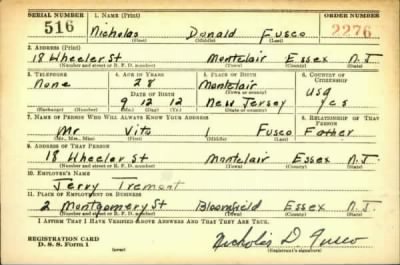 SERIAL NUMBER 1. NAME (Print) ORDER NUMBER
516 Nicholas Donald Fusco 2276
(First) (Middle) (Last)
2. ADDRESS (Print)
18 Wheeler St Montclair Essex N.J.
(Number and street or R. F. D. number) (Town) (County) (State)
3. TELEPHONE 4. AGE IN YEARS 5. PLACE OF BIRTH 6. COUNTRY OF CITIZENSHIP
None 28 Montclair USA
DATE OF BIRTH (Town or county)
9 12 12 New Jersey Yes
(Exchange) (Number) (Mo.) (Day) (Yr.) (State or country)
7. NAME OF PERSON WHO WILL ALWAYS KNOW YOUR ADDRESS 8. RELATIONSHIP OF THAT PERSON
Mr Vito Fusco Father
(Mr., Mrs., Miss) (First) (Middle) (Last)
9. ADDRESS OF THAT PERSON
18 Wheeler St Montclair Essex N.J.
(Number and street or R. F. D. number) (Town) (County) (State)
10. EMPLOYER'S NAME
Jerry Tremont
11. PLACE OF EMPLOYMENT OR BUSINESS
2 Montgomery St Bloomfield Essex N.J.
(Number and street or R. F. D. number) (Town) (County) (State)
I AFFIRM THAT I HAVE VERIFIED ABOVE ANSWERS AND THAT THEY ARE TRUE.
REGISTRATION CARD
D. S. S. Form 1 (over) Nicholas D. Fusco
(Registrant's signature)